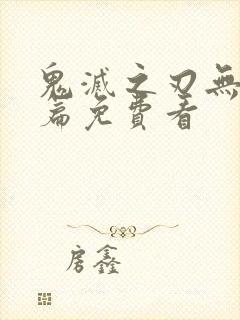 鬼滅之刃無
篇免費看
房鑫